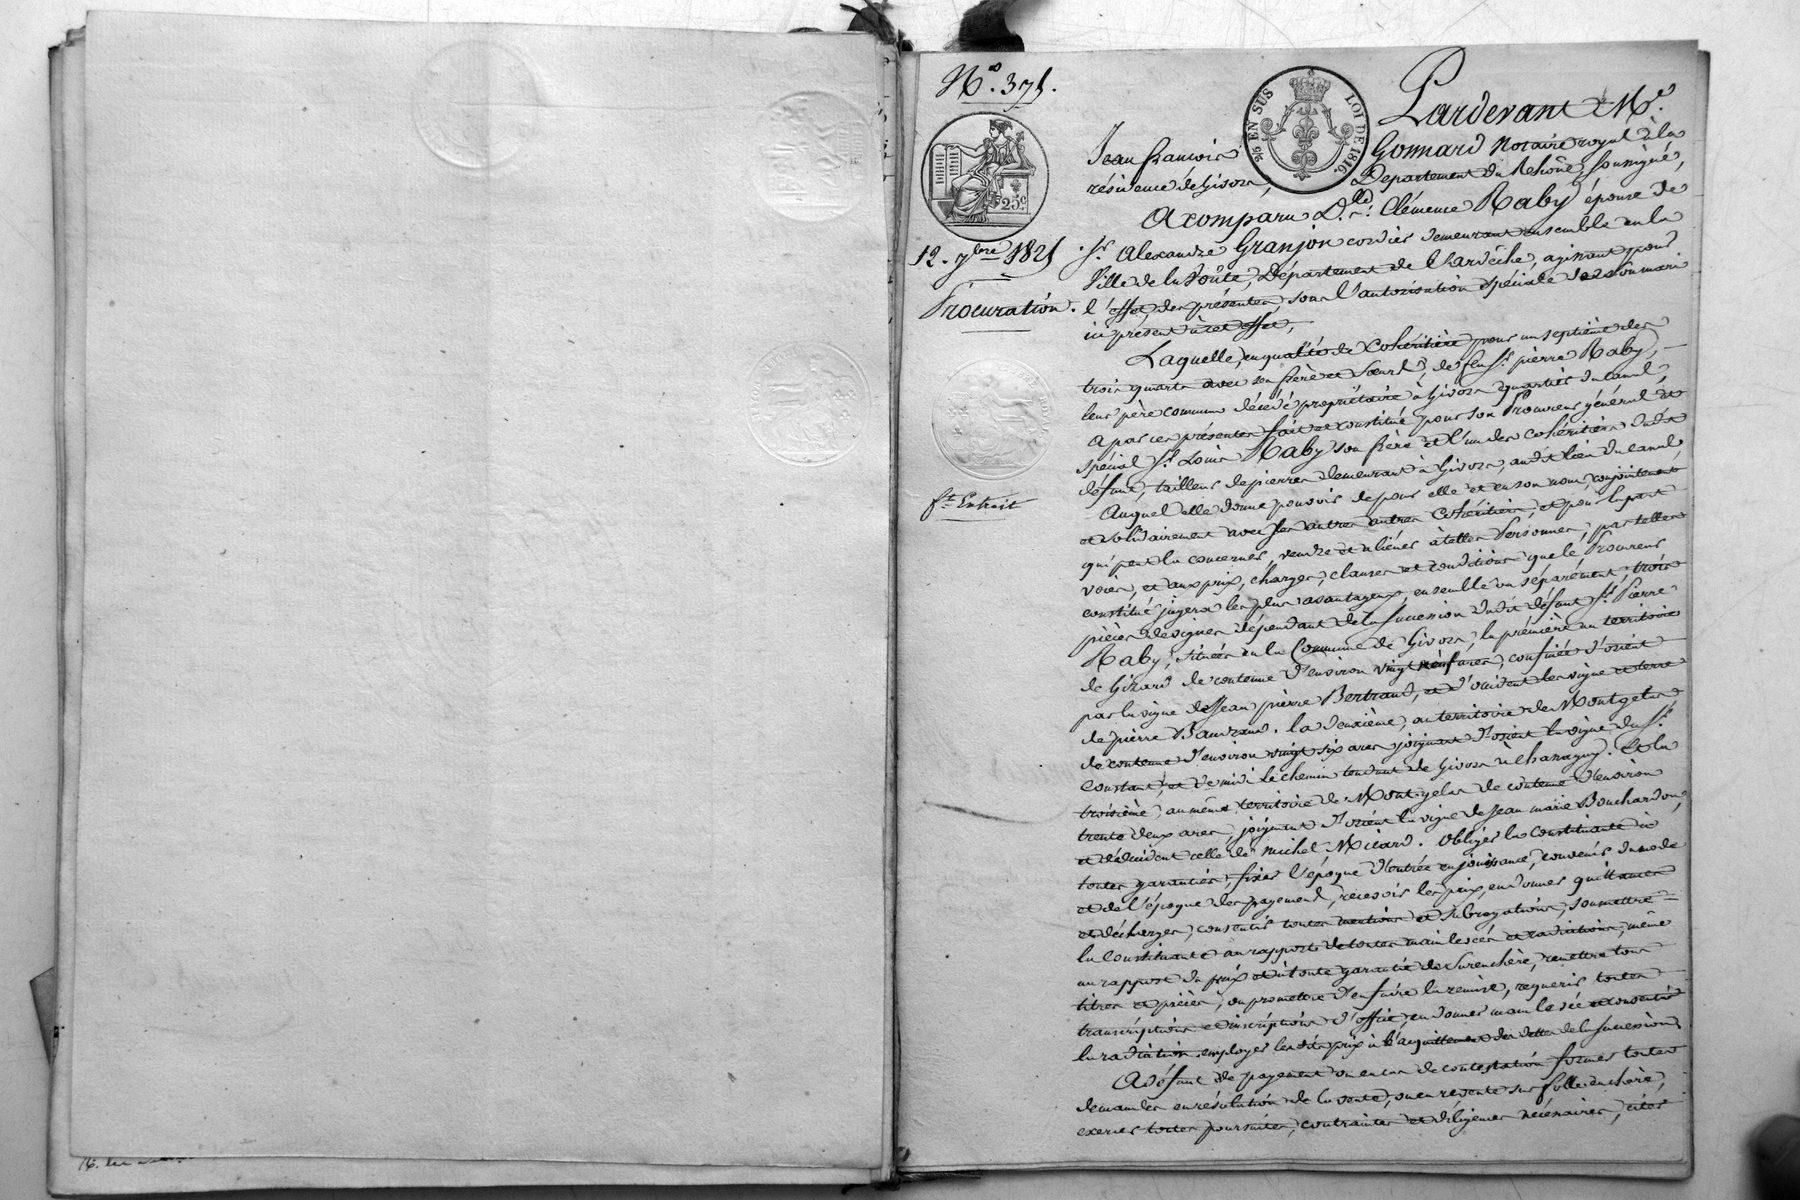 N.o 371.
Pardevant Me.
Jean françois Gonnard Notaire royal à la
résidence de Givors, Département du Rhône, soussigné,
12. 7bre 1821
Procuration.
ft. Extrait
25c
25 EN SUS LOI DE 1816.
A comparu D.lle Clémence Raby épouse de
Sr. Alexandre Granjon cordier demeurant ensemble en la
Ville de la Voûte, Département de l'Ardèche, agissant pour
l'effet des présentes sous l'autorisation spéciale de son mari
ici présent à cet effet,
Laquelle, en qualité de Cohéritière pour un septième des
trois quarts avec ses frère et Sœurs, de feu Sr. pierre Raby,
leur père commun décédé propriétaire à Givors quartier du canal,
a par ces présentes fait et constitué pour son Procureur général et
spécial Sr. Louis Raby son frère et l'un des cohéritiers dudit
défunt, tailleur de pierres demeurant à Givors, audit lieu du canal,
Auquel elle donne pouvoir de pour elle et en son nom, conjointement
et solidairement avec les autres autres Cohéritiers, et pour la part
qui peut la concerner, vendre et aliéner à telles Personnes, par telles
voies, et aux prix, charges, clauses et conditions que le Procureur
constitué jugera les plus avantageux, ensemble ou séparément, trois
pièces de vignes dépendant de la succession dudit défunt Sr. Pierre
Raby, situées en la Commune de Givors, la première au territoire
de Gizard de contenue d'environ vingt neuf ares, confinée d'orient
par la vigne de Jean pierre Bertrand, et d'occident les vigne et terre
de pierre Bauzand. la Deuxième, au territoire de Montgelas
de contenue d'environ vingt six ares joignant d'orient la vigne du Sr.
Constant, et de midi le chemin tendant de Givors à Chassagny. Et la
troisième, au même territoire de Montgelas de contenue d'environ
trente deux ares, joignant d'orient la vigne de Jean marie Bouchardon,
et d'occident celle de Michel Micard. Obliger la constituante à
toutes garanties, fixer l'époque d'entrée en jouissance, convenir du mode
et de l'époque des payemens, recevoir les prix, en donner quittances
et décharges, consentir toutes mentions et subrogations, soumettre
la Constituante au rapport de toutes main levées et radiations, même
au rapport du prix et à toute garantie de Surenchère, remettre tous
titres et pièces, ou promettre d'en faire la remise, requérir toutes
transcriptions et inscriptions d'office, en donner main levée et consentir
la radiation, employer lesdits prix à l'acquittement des dettes de la succession
A défaut de payement ou en cas de contestation former toutes
demandes en résolution de la vente, ou en revente sur folle enchère,
exercer toutes poursuites, contraintes et diligences nécessaires, citer